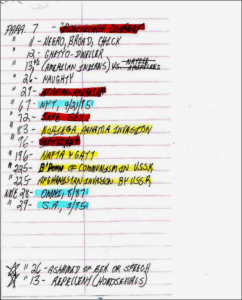 PARA. 7 -
" 11 - NEGRO, BROAD, CHICK
" 12 - GHETTO-DWELLER
" 13, (AMERICAN INDIANS) VS. NATIVE AMERICANS
" 26 - NAUGHTY
" 29 -
" 67 NYT, 9/21/95
" 72 - SAFE SEX
" 83 - NORIEGA, PANAMA INVASION
" 96 -
" 196 - NAFTA & GATT
" 225 - OF COMMUNISM IN USSR
" 225 - AFGHANISTAN INVASION BY USSR
NOTE 28 - OMNI, 8/87
" 29 - S.A., 3/95
" 26 - ASHAMED OF SEX OR SPEECH
" 13 - REPELLENT (HOMOSEXUALS)